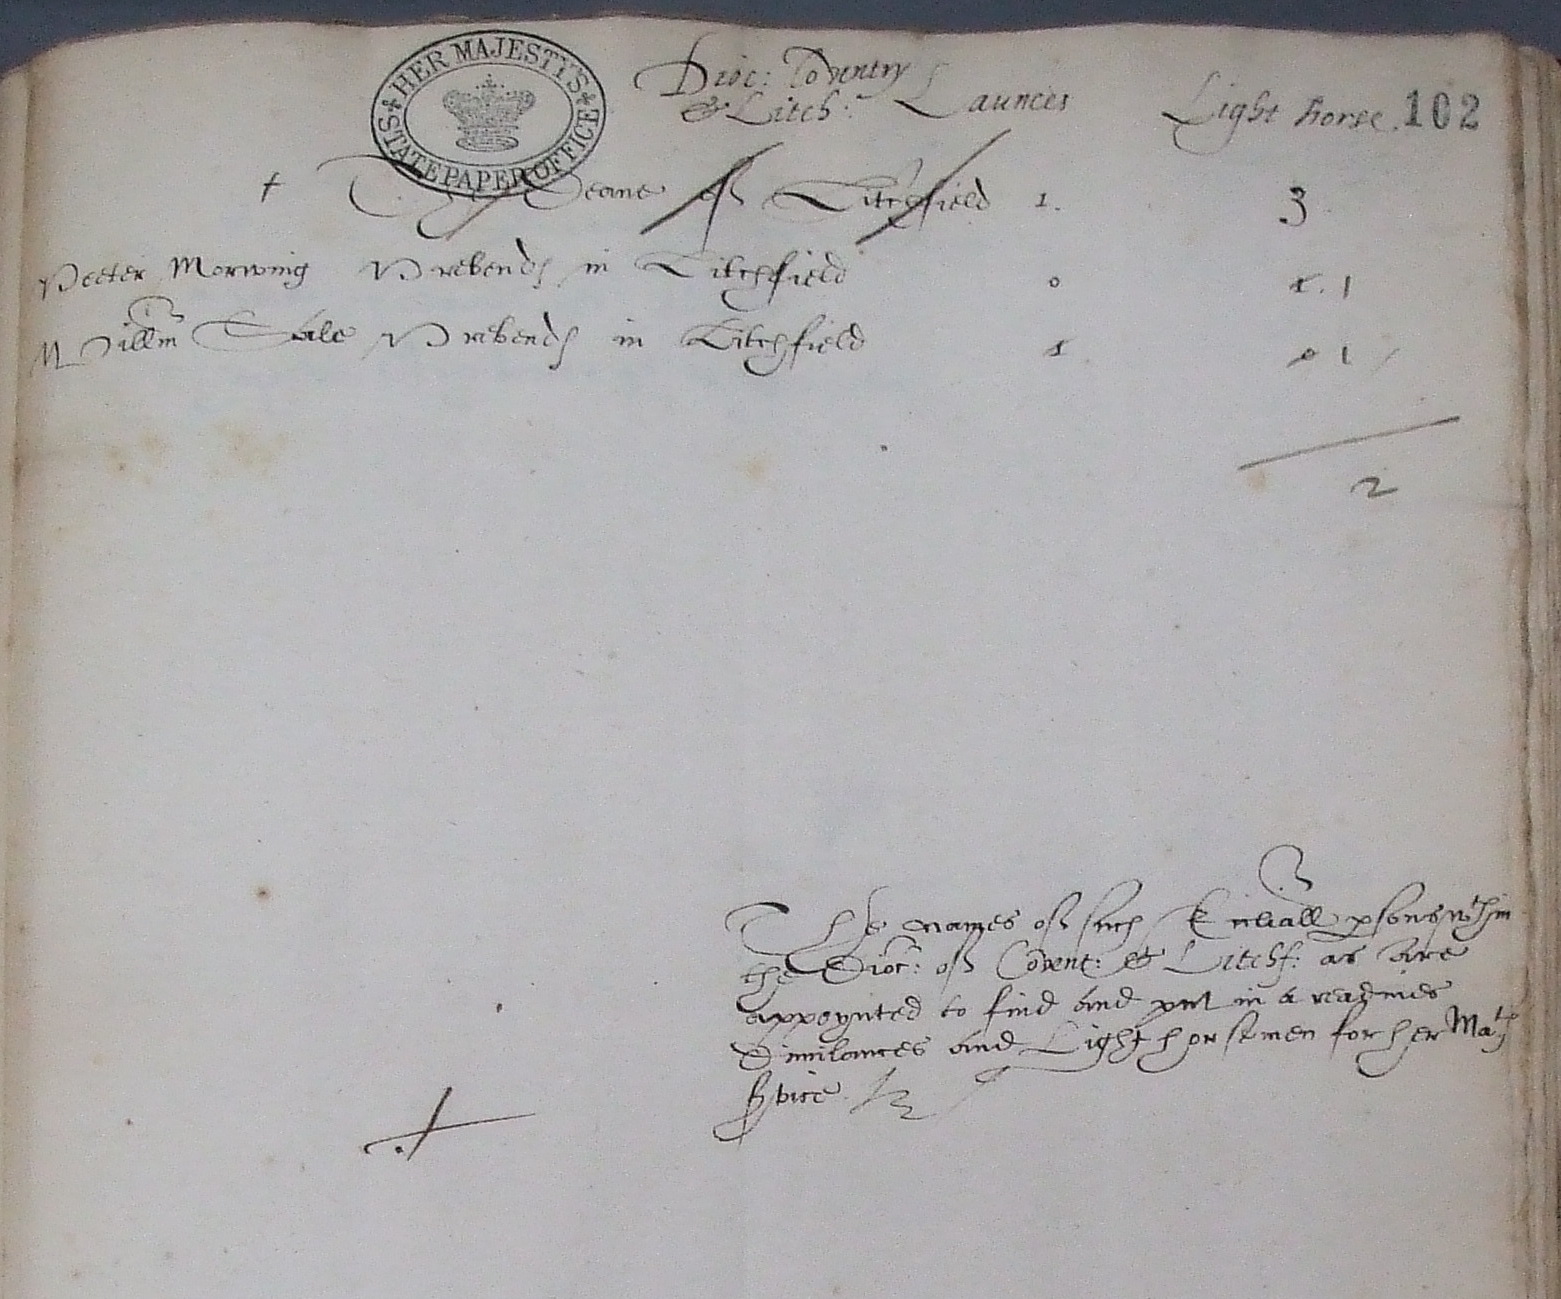 HER MAJESTY'S STATE PAPER OFFICE
Dioc: Coventry
& Litch: Launces Light horse. 102
+ The Deane of Litchfield 1. 3
Peeter Morwing Prebend in Litchfield 0 1. 1
Willm Sale Prebend in Litchfield 1 0 1
2
The names of such Ecclіall psons wthin
the Dioc: of Covent: & Litchf: as are
appoynted to find and put in a readines
Dimilances and Light horsemen for her Matis
service